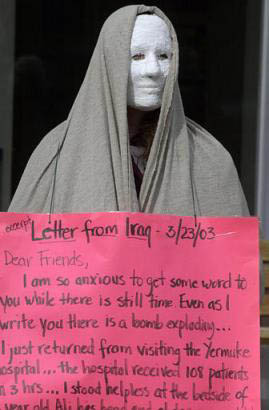 excerpt
Letter from Iraq - 3/23/03
Dear Friends,
I am so anxious to get some word to
you while there is still time. Even as I
write you there is a bomb exploding...
I just returned from visiting the Yermuke
ospital... the hospital received 108 patients
n 3 hrs... I stood helpless at the bedside of
year old Ali